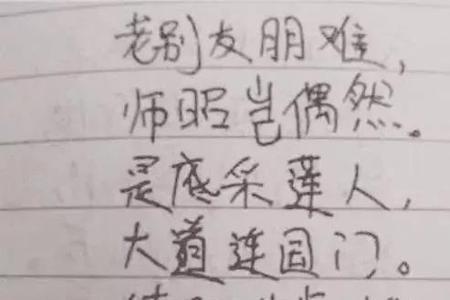 老别友朋难，
师昭岂偶然。
是底采莲人，
大道连国门。